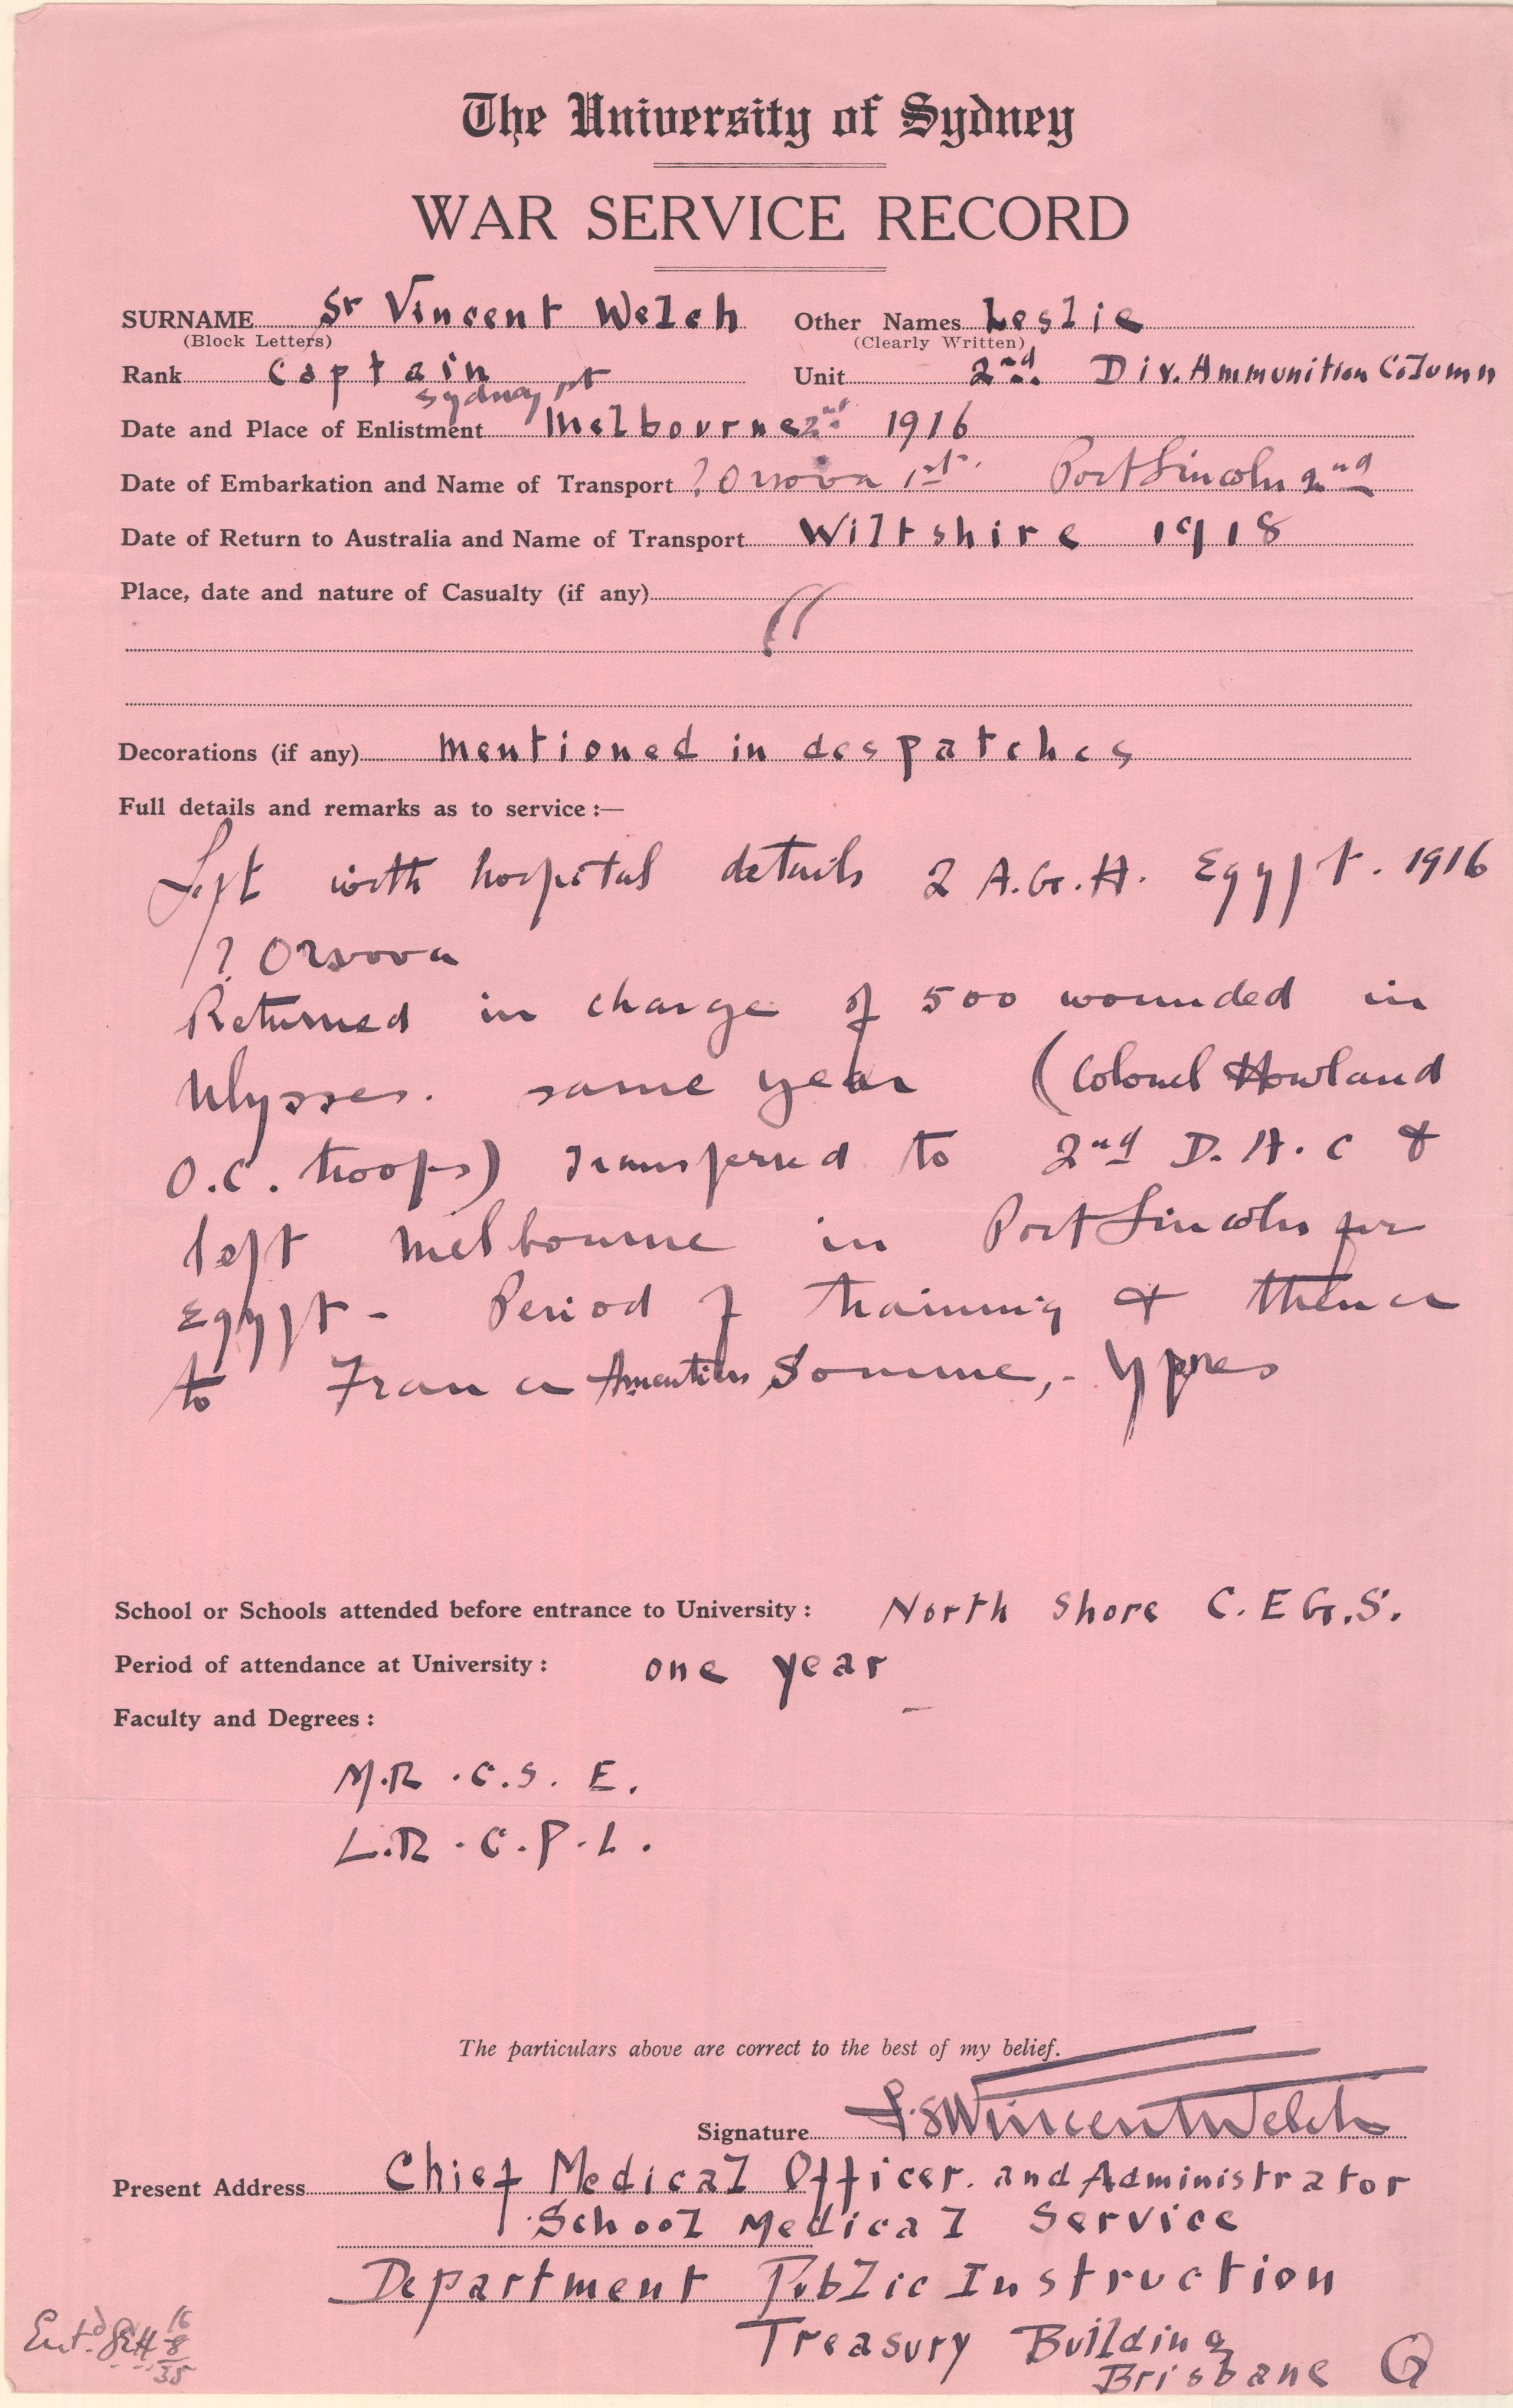 The University of Sydney
WAR SERVICE RECORD
SURNAME St Vincent Welch Other Names Leslie
(Block Letters) (Clearly Written)
Rank Captain Unit 2nd. Div. Ammunition Column
Sydney 1st
Date and Place of Enlistment Melbourne 2nd 1916
Date of Embarkation and Name of Transport ? Orsova 1st. Port Lincoln 2nd
Date of Return to Australia and Name of Transport Wiltshire 1918
Place, date and nature of Casualty (if any)
Decorations (if any) mentioned in despatches
Full details and remarks as to service :—
Left with hospital details 2 A.G.H. Egypt. 1916
? Orsova
Returned in charge of 500 wounded in
Ulysses. same year (Colonel Howland
O.C. troops) Transferred to 2nd D.A.C &
left Melbourne in Port Lincoln for
Egypt - Period of training & thence
to France Armentieres Somme, - Ypres
School or Schools attended before entrance to University : North Shore C.E.G.S.
Period of attendance at University : one year
Faculty and Degrees : —
M.R.C.S. E.
L.R.C.P.L.
The particulars above are correct to the best of my belief.
Signature L. St Vincent Welch
Present Address Chief Medical Officer. and Administrator
School Medical Service
Department Public Instruction
Treasury Building
Brisbane Q
Ent'd 16/8/35